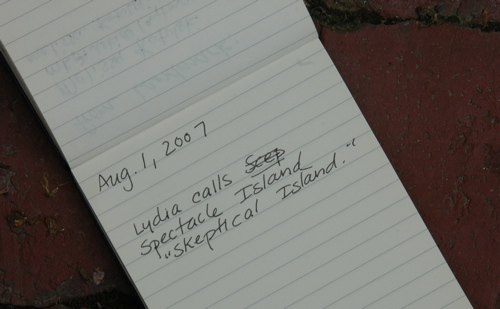 Aug. 1, 2007
Lydia calls
Spectacle Island
"Skeptical Island."